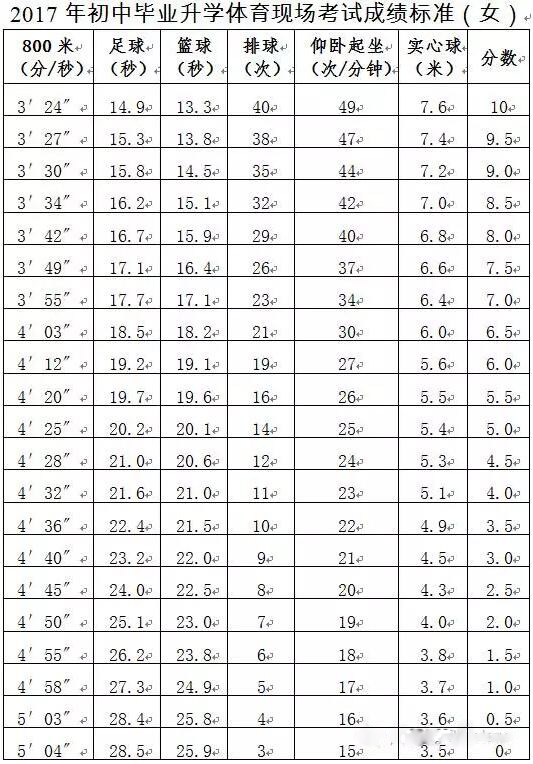 2017 年初中毕业升学体育现场考试成绩标准（女）
800 米（分/秒） 足球（秒） 篮球（秒） 排球（次） 仰卧起坐（次/分钟） 实心球（米） 分数
3′24″ 14.9 13.3 40 49 7.6 10
3′27″ 15.3 13.8 38 47 7.4 9.5
3′30″ 15.8 14.5 35 44 7.2 9.0
3′34″ 16.2 15.1 32 42 7.0 8.5
3′42″ 16.7 15.9 29 40 6.8 8.0
3′49″ 17.1 16.4 26 37 6.6 7.5
3′55″ 17.7 17.1 23 34 6.4 7.0
4′03″ 18.5 18.2 21 30 6.0 6.5
4′12″ 19.2 19.1 19 27 5.6 6.0
4′20″ 19.7 19.6 16 26 5.5 5.5
4′25″ 20.2 20.1 14 25 5.4 5.0
4′28″ 21.0 20.6 12 24 5.3 4.5
4′32″ 21.6 21.0 11 23 5.1 4.0
4′36″ 22.4 21.5 10 22 4.9 3.5
4′40″ 23.2 22.0 9 21 4.5 3.0
4′45″ 24.0 22.5 8 20 4.3 2.5
4′50″ 25.1 23.0 7 19 4.0 2.0
4′55″ 26.2 23.8 6 18 3.8 1.5
4′58″ 27.3 24.9 5 17 3.7 1.0
5′03″ 28.4 25.8 4 16 3.6 0.5
5′04″ 28.5 25.9 3 15 3.5 0